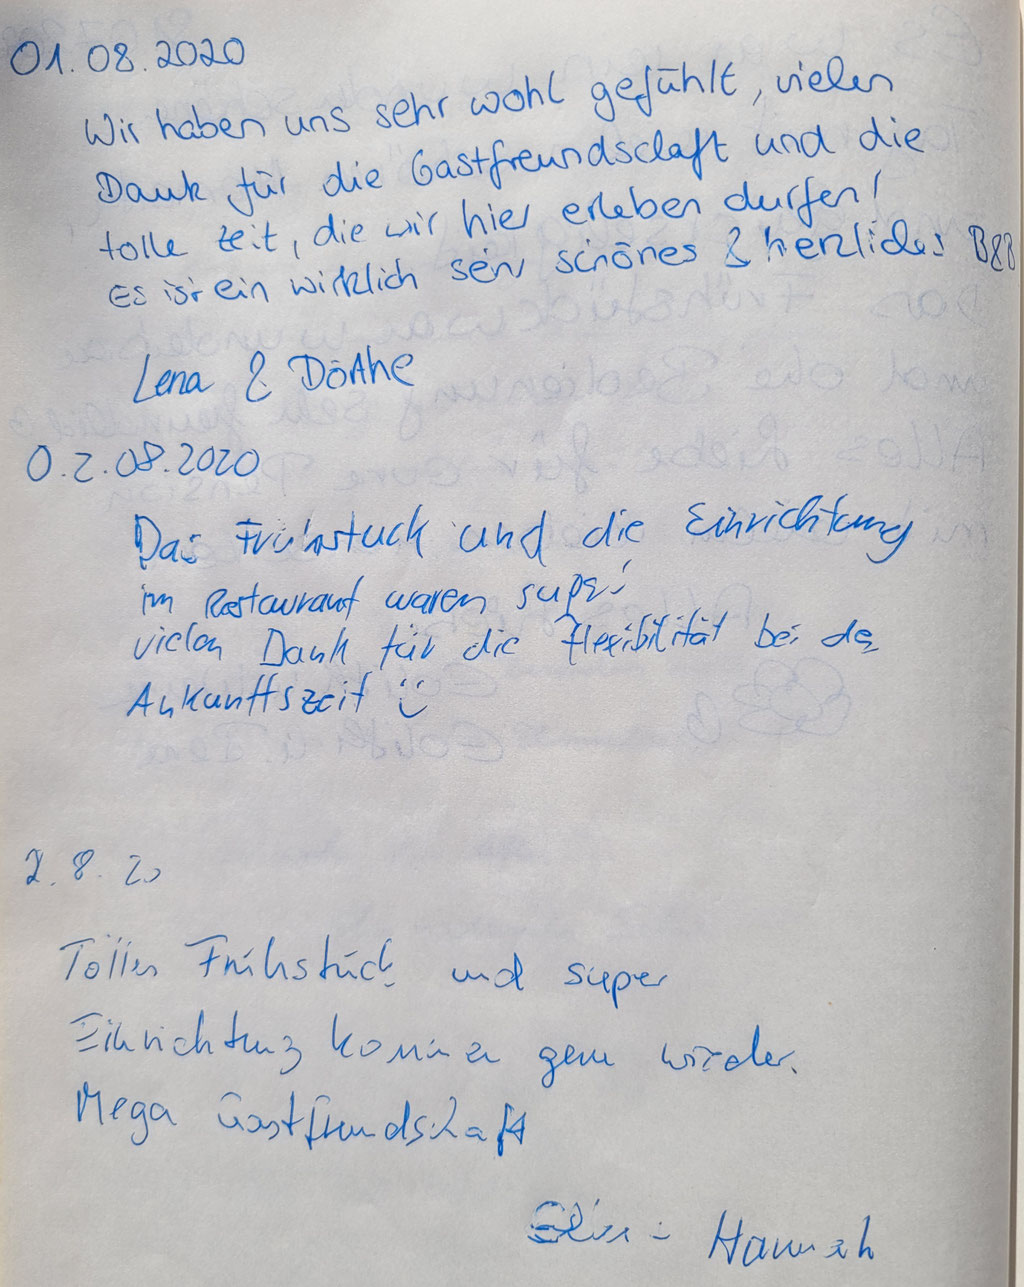 01.08.2020
Wir haben uns sehr wohl gefühlt, vielen
Dank für die Gastfreundschaft und die
tolle Zeit, die wir hier erleben durfen!
Es ist ein wirklich sehr schönes & herzliches B&B
Lena & Dörthe
0.2.08.2020
Das Frühstuck und die Einrichtung
im Restaurant waren super!
vielen Dank für die Flexibilität bei der
Ankunftszeit ☺
2.8.20
Tolles Frühstück und super
Einrichtung kommen gern wieder.
Mega Gastfreundschaft
Hannah